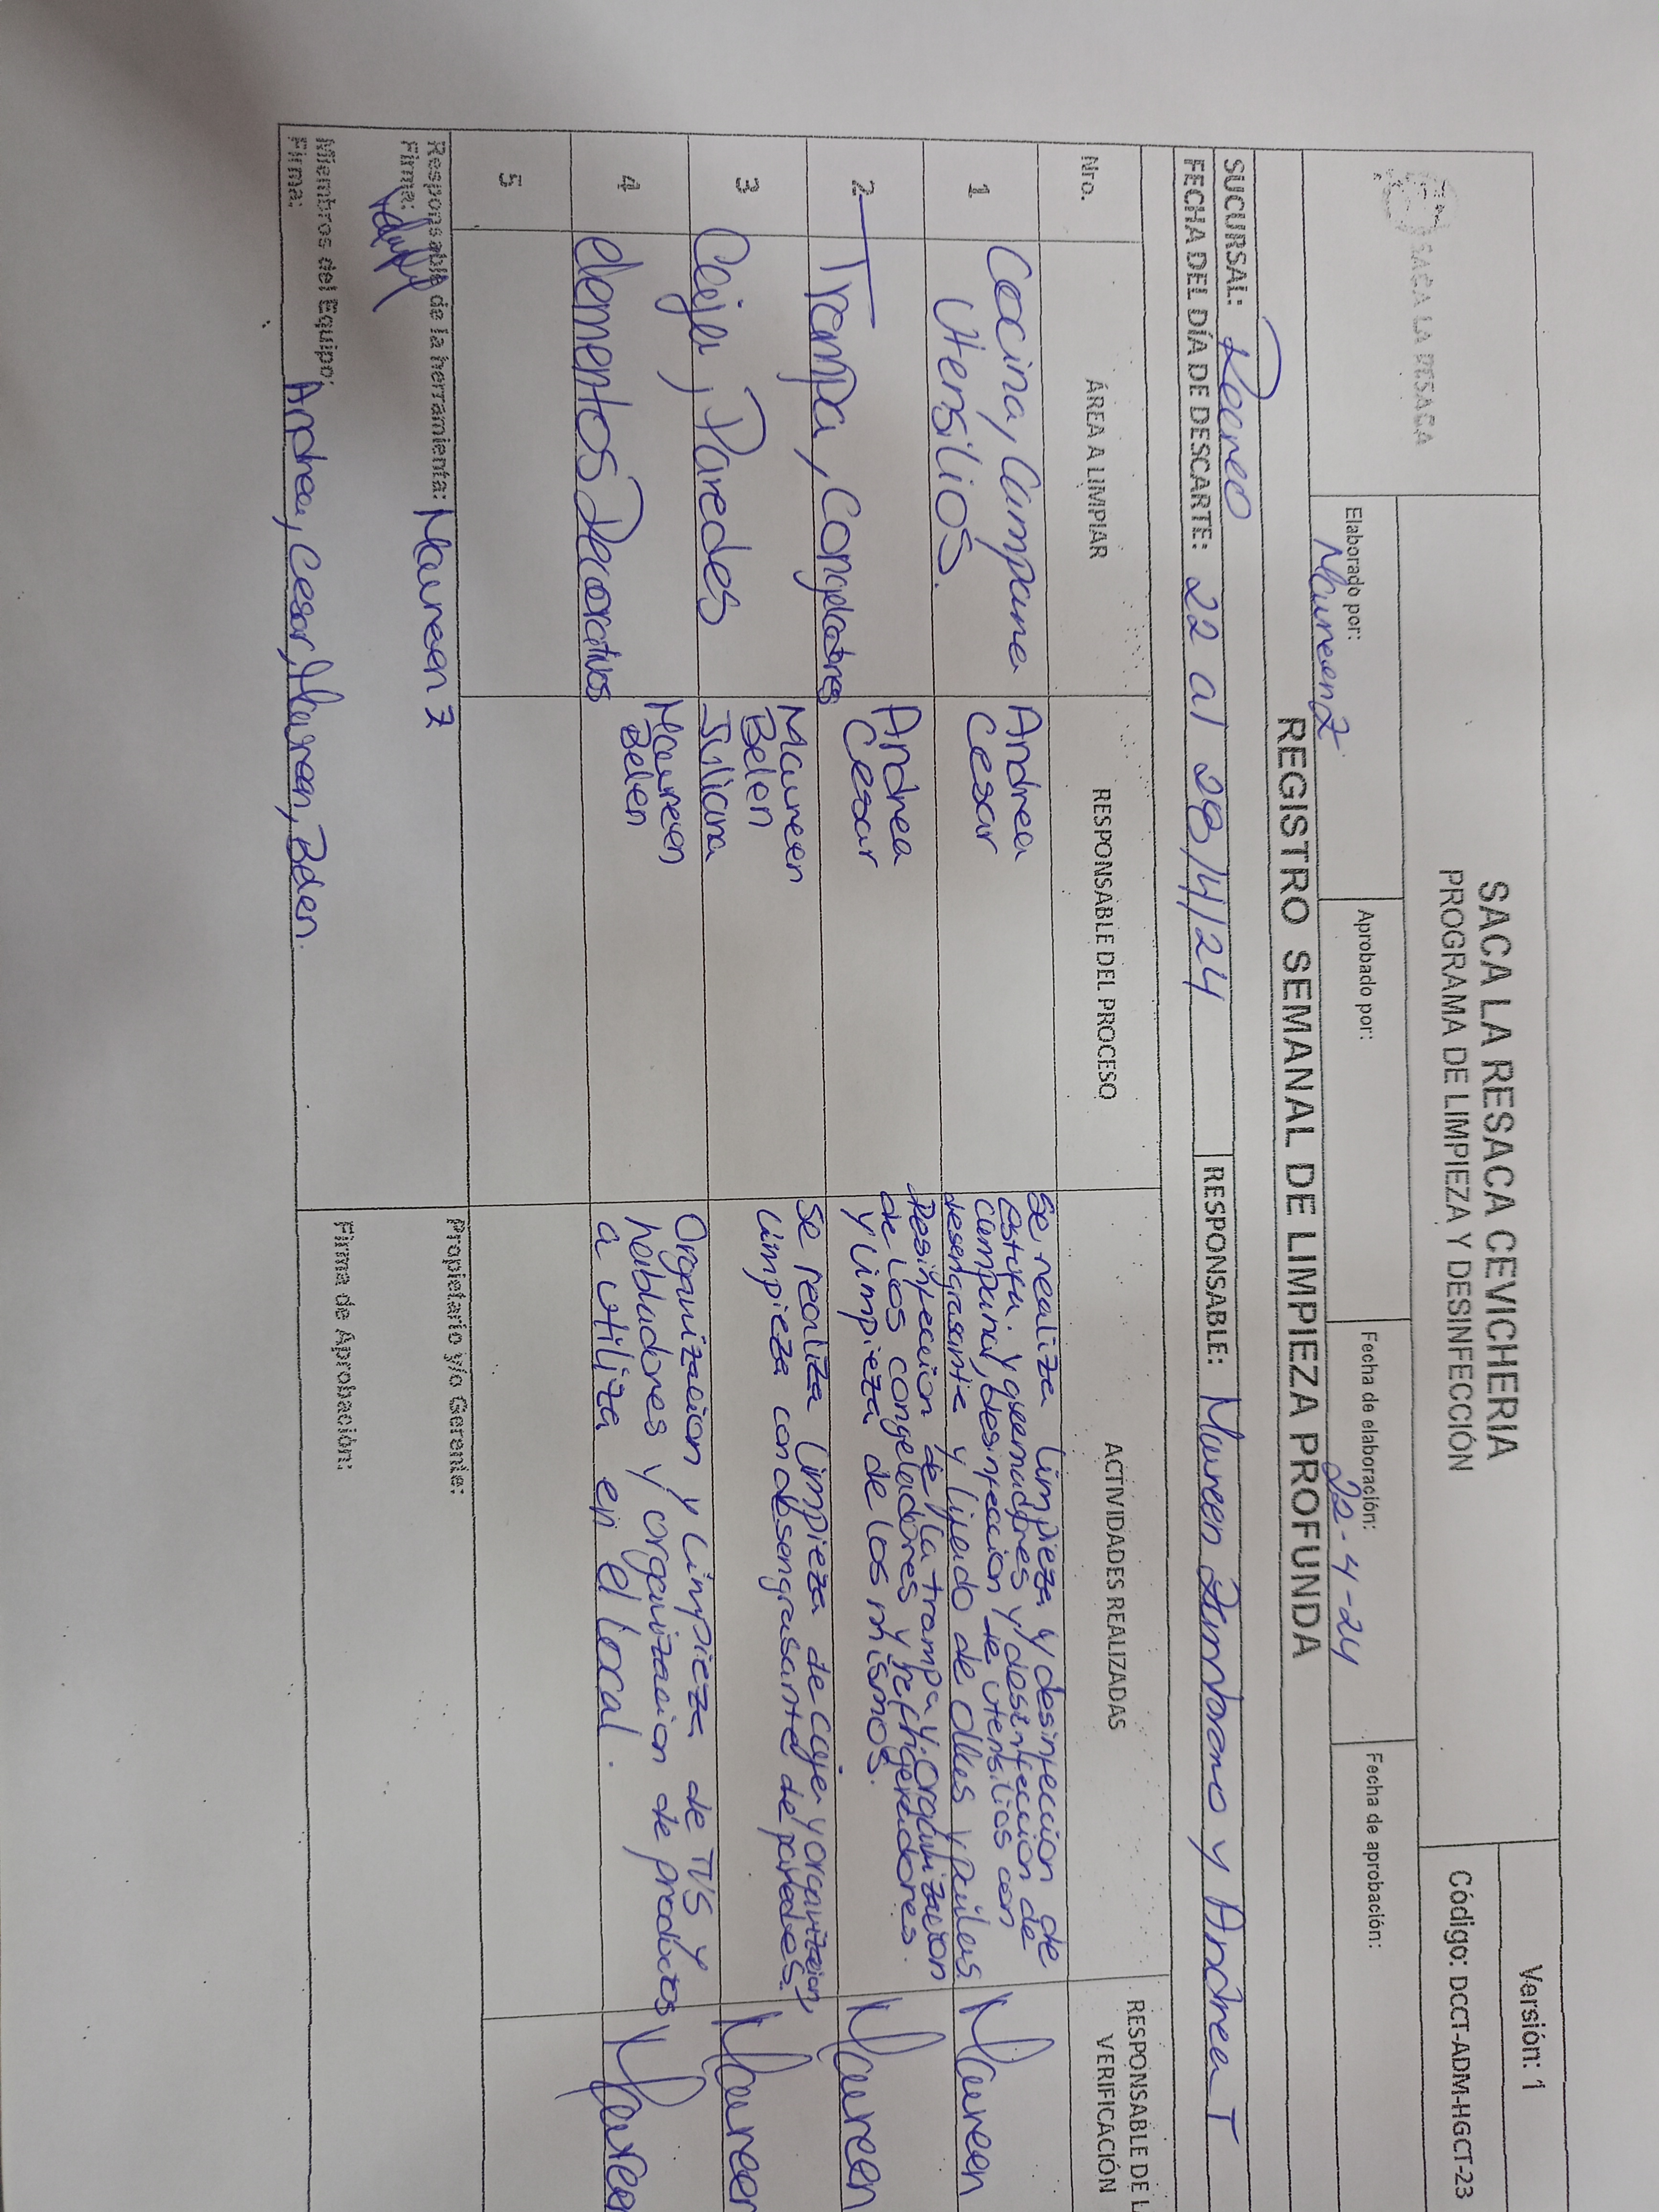 SACA LA RESACA
SACA LA RESACA CEVICHERIA
PROGRAMA DE LIMPIEZA Y DESINFECCIÓN
Versión: 1
Código: DCCT-ADM-HGCT-23
Elaborado por:
Maureen Z
Aprobado por:
Fecha de elaboración:
22-4-24
Fecha de aprobación:
REGISTRO SEMANAL DE LIMPIEZA PROFUNDA
SUCURSAL: Recreo
FECHA DEL DÍA DE DESCARTE: 22 al 28/4/24
RESPONSABLE: Maureen Zambrano y Andrea T
Nro.
ÁREA A LIMPIAR
RESPONSABLE DEL PROCESO
ACTIVIDADES REALIZADAS
RESPONSABLE DE L
VERIFICACIÓN
1
Cocina, Campana
Utensilios.
Andrea
Cesar
Se realiza limpieza y desinfeccion de
estufa y quemadores y desinfeccion de
campana, desinfeccion de utensilios con
desengrasante y lijado de ollas y pailas
Maureen
2
Trampa, Congeladores
Andrea
Cesar
Desinfeccion de la trampa y organizacion
de los congeladores y refrigeradores.
y limpieza de los mismos.
Maureen
3
Caja, Paredes
Maureen
Belen
Juliana
Se realiza limpieza de caja y organizacion,
limpieza con desengrasante de paredes.
Maureen
4
elementos Decorativos
Maureen
Belen
Organizacion y limpieza de TVS y
habladores y organizacion de productos
a utiliza en el local.
Maureen
5
Responsable de la herramienta: Maureen Z
Firma:
Propietario y/o Gerente:
Miembros del Equipo: Andrea, Cesar, Maureen, Belen.
Firma:
Firma de Aprobación: